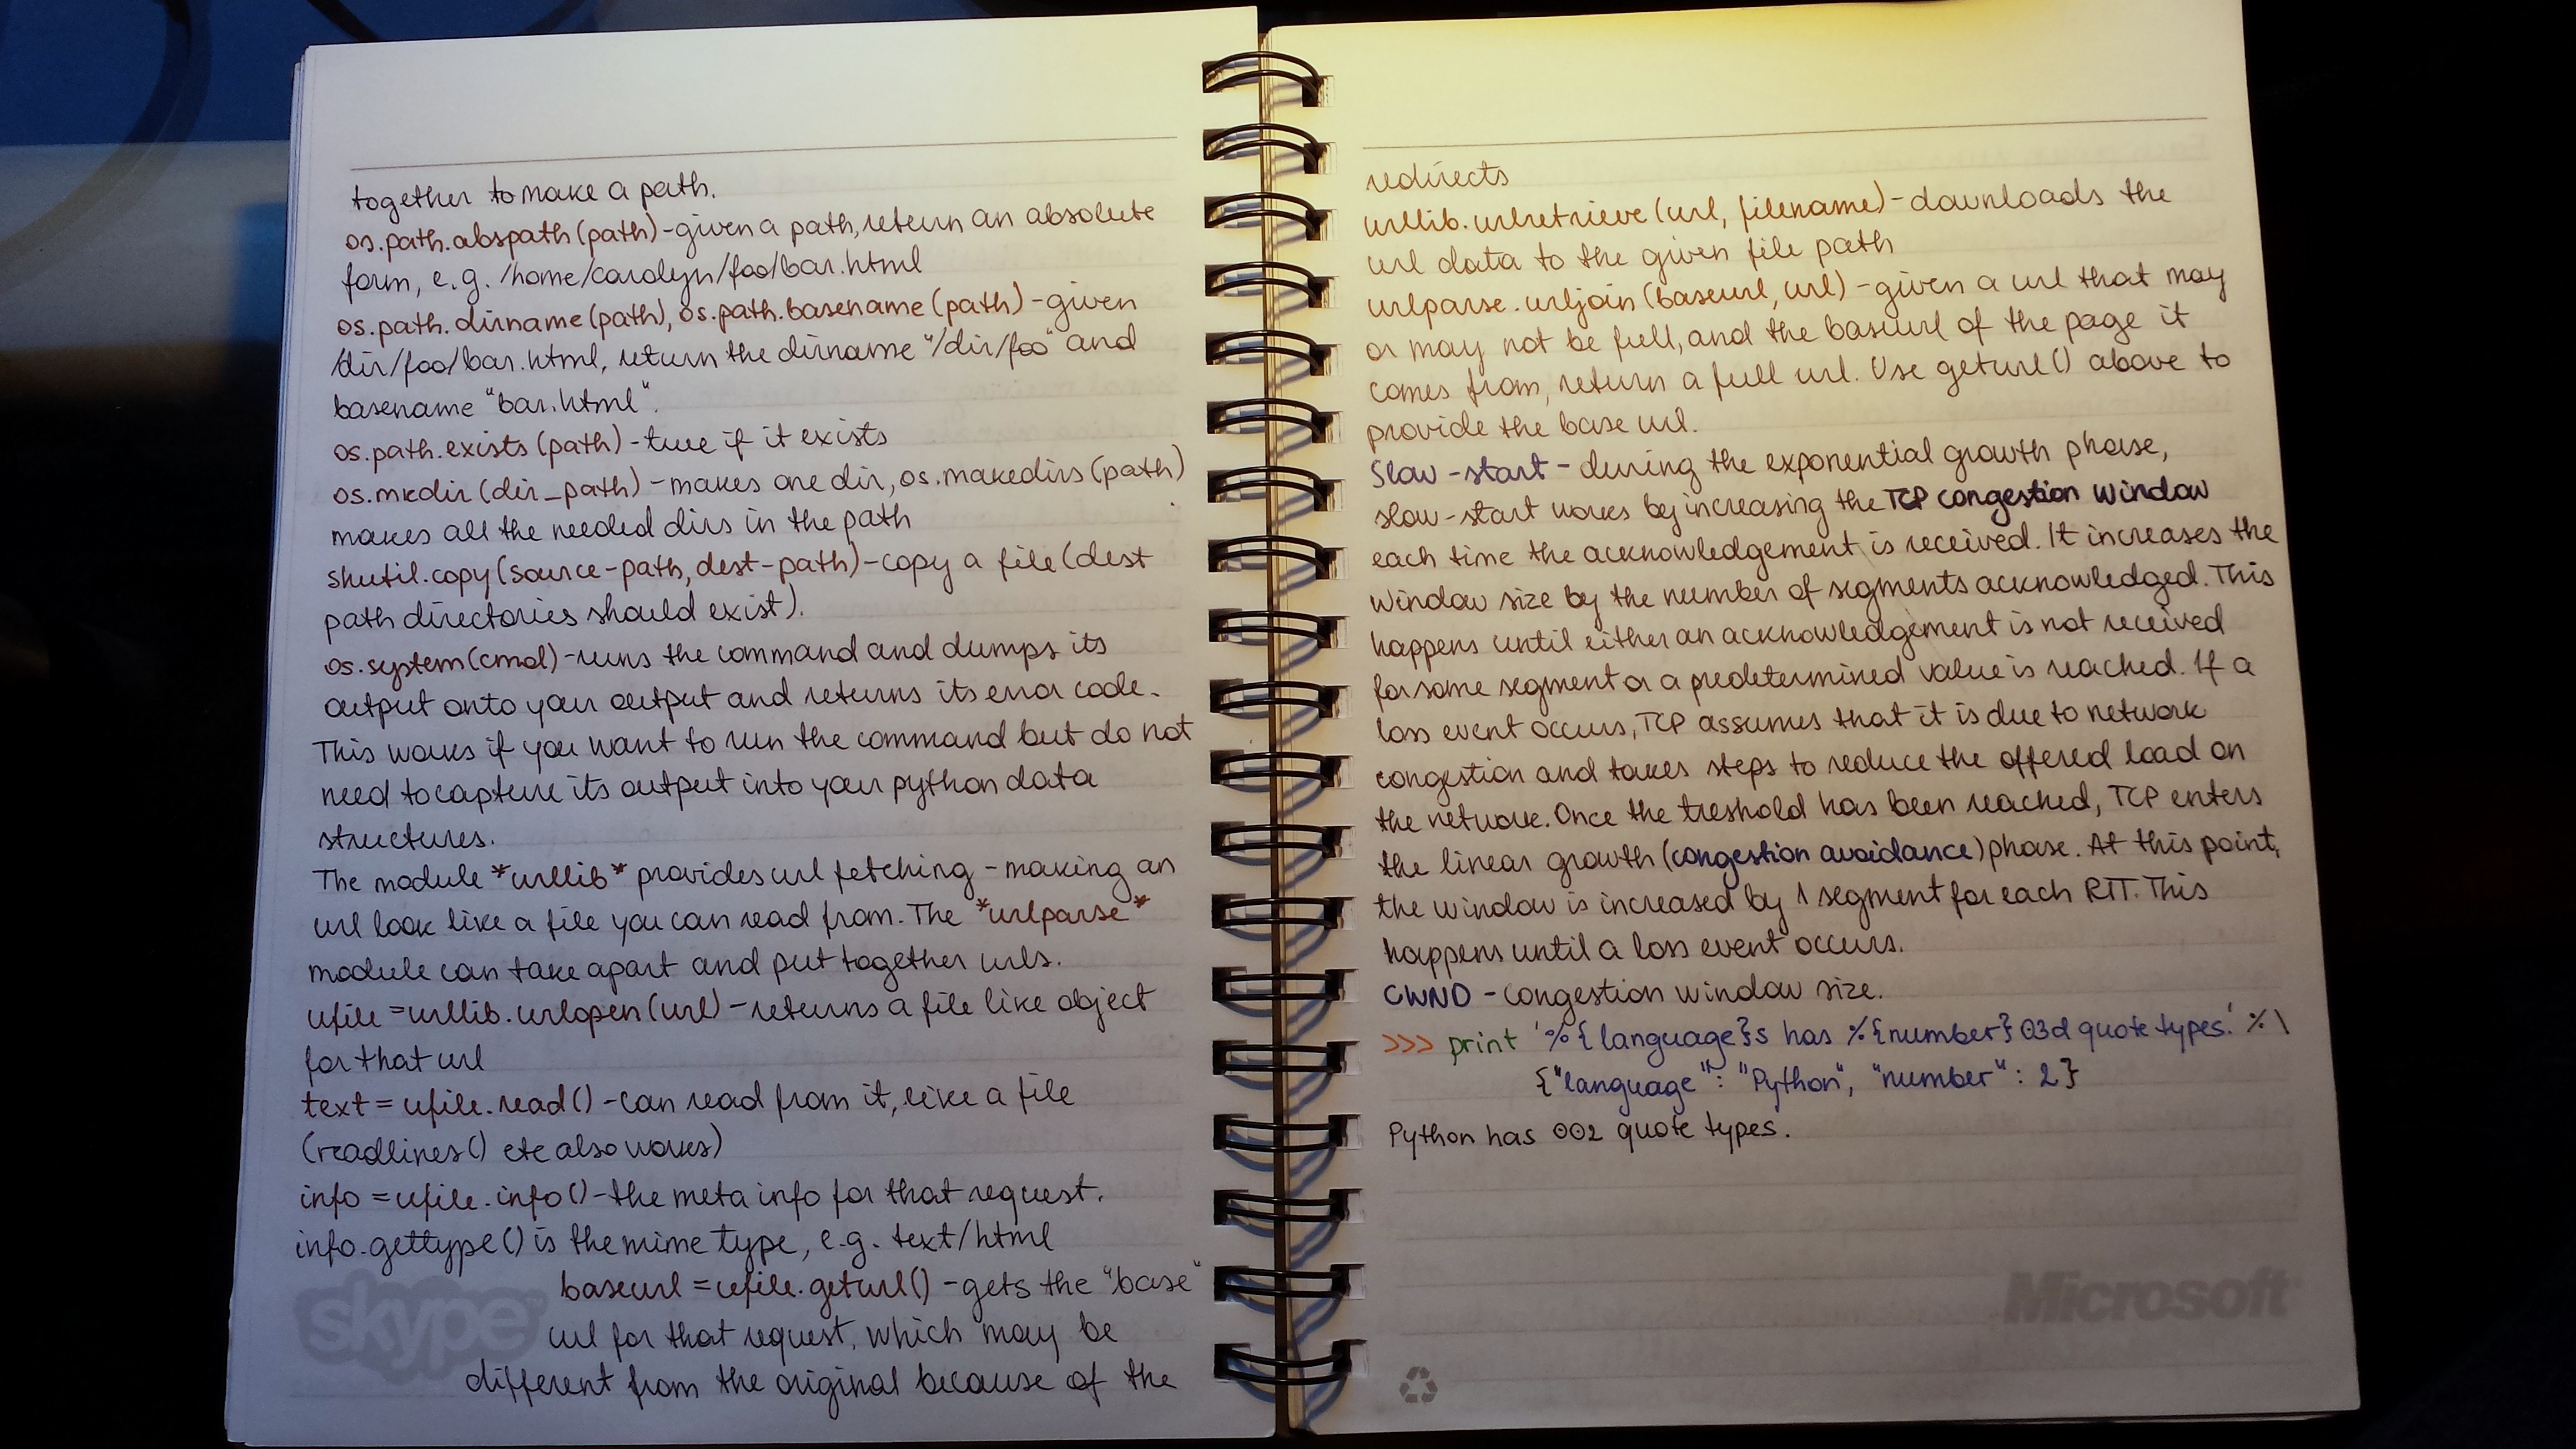 together to make a path.
os.path.abspath(path)-given a path, return an absolute
form, e.g. /home/carolyn/foo/bar.html
os.path.dirname(path), os.path.basename(path)-given
/dir/foo/bar.html, return the dirname "/dir/foo" and
basename "bar.html".
os.path.exists(path)-true if it exists
os.mkdir(dir_path)-makes one dir, os.makedirs(path)
makes all the needed dirs in the path
shutil.copy(source-path, dest-path)-copy a file (dest
path directories should exist).
os.system(cmd)-runs the command and dumps its
output onto your output and returns its error code.
This works if you want to run the command but do not
need to capture its output into your python data
structures.
The module *urllib* provides url fetching - making an
url look like a file you can read from. The *urlparse*
module can take apart and put together urls.
ufile = urllib.urlopen(url)-returns a file like object
for that url
text = ufile.read()-can read from it, like a file
(readlines() etc also works)
info = ufile.info()-the meta info for that request.
info.gettype() is the mime type, e.g. text/html
baseurl = ufile.geturl()-gets the "base"
url for that request, which may be
different from the original because of the
skype
redirects
urllib.urlretrieve(url, filename)-downloads the
url data to the given file path
urlparse.urljoin(baseurl, url)-given a url that may
or may not be full, and the baseurl of the page it
comes from, return a full url. Use geturl() above to
provide the base url.
Slow-start - during the exponential growth phase,
slow-start works by increasing the TCP congestion window
each time the acknowledgement is received. It increases the
window size by the number of segments acknowledged. This
happens until either an acknowledgement is not received
for some segment or a predetermined value is reached. If a
loss event occurs, TCP assumes that it is due to network
congestion and takes steps to reduce the offered load on
the network. Once the treshold has been reached, TCP enters
the linear growth (congestion avoidance) phase. At this point,
the window is increased by 1 segment for each RTT. This
happens until a loss event occurs.
CWND - congestion window size.
>>> print '%{language}s has %{number}03d quote types.' % \
{"language": "Python", "number": 2}
Python has 002 quote types.
Microsoft